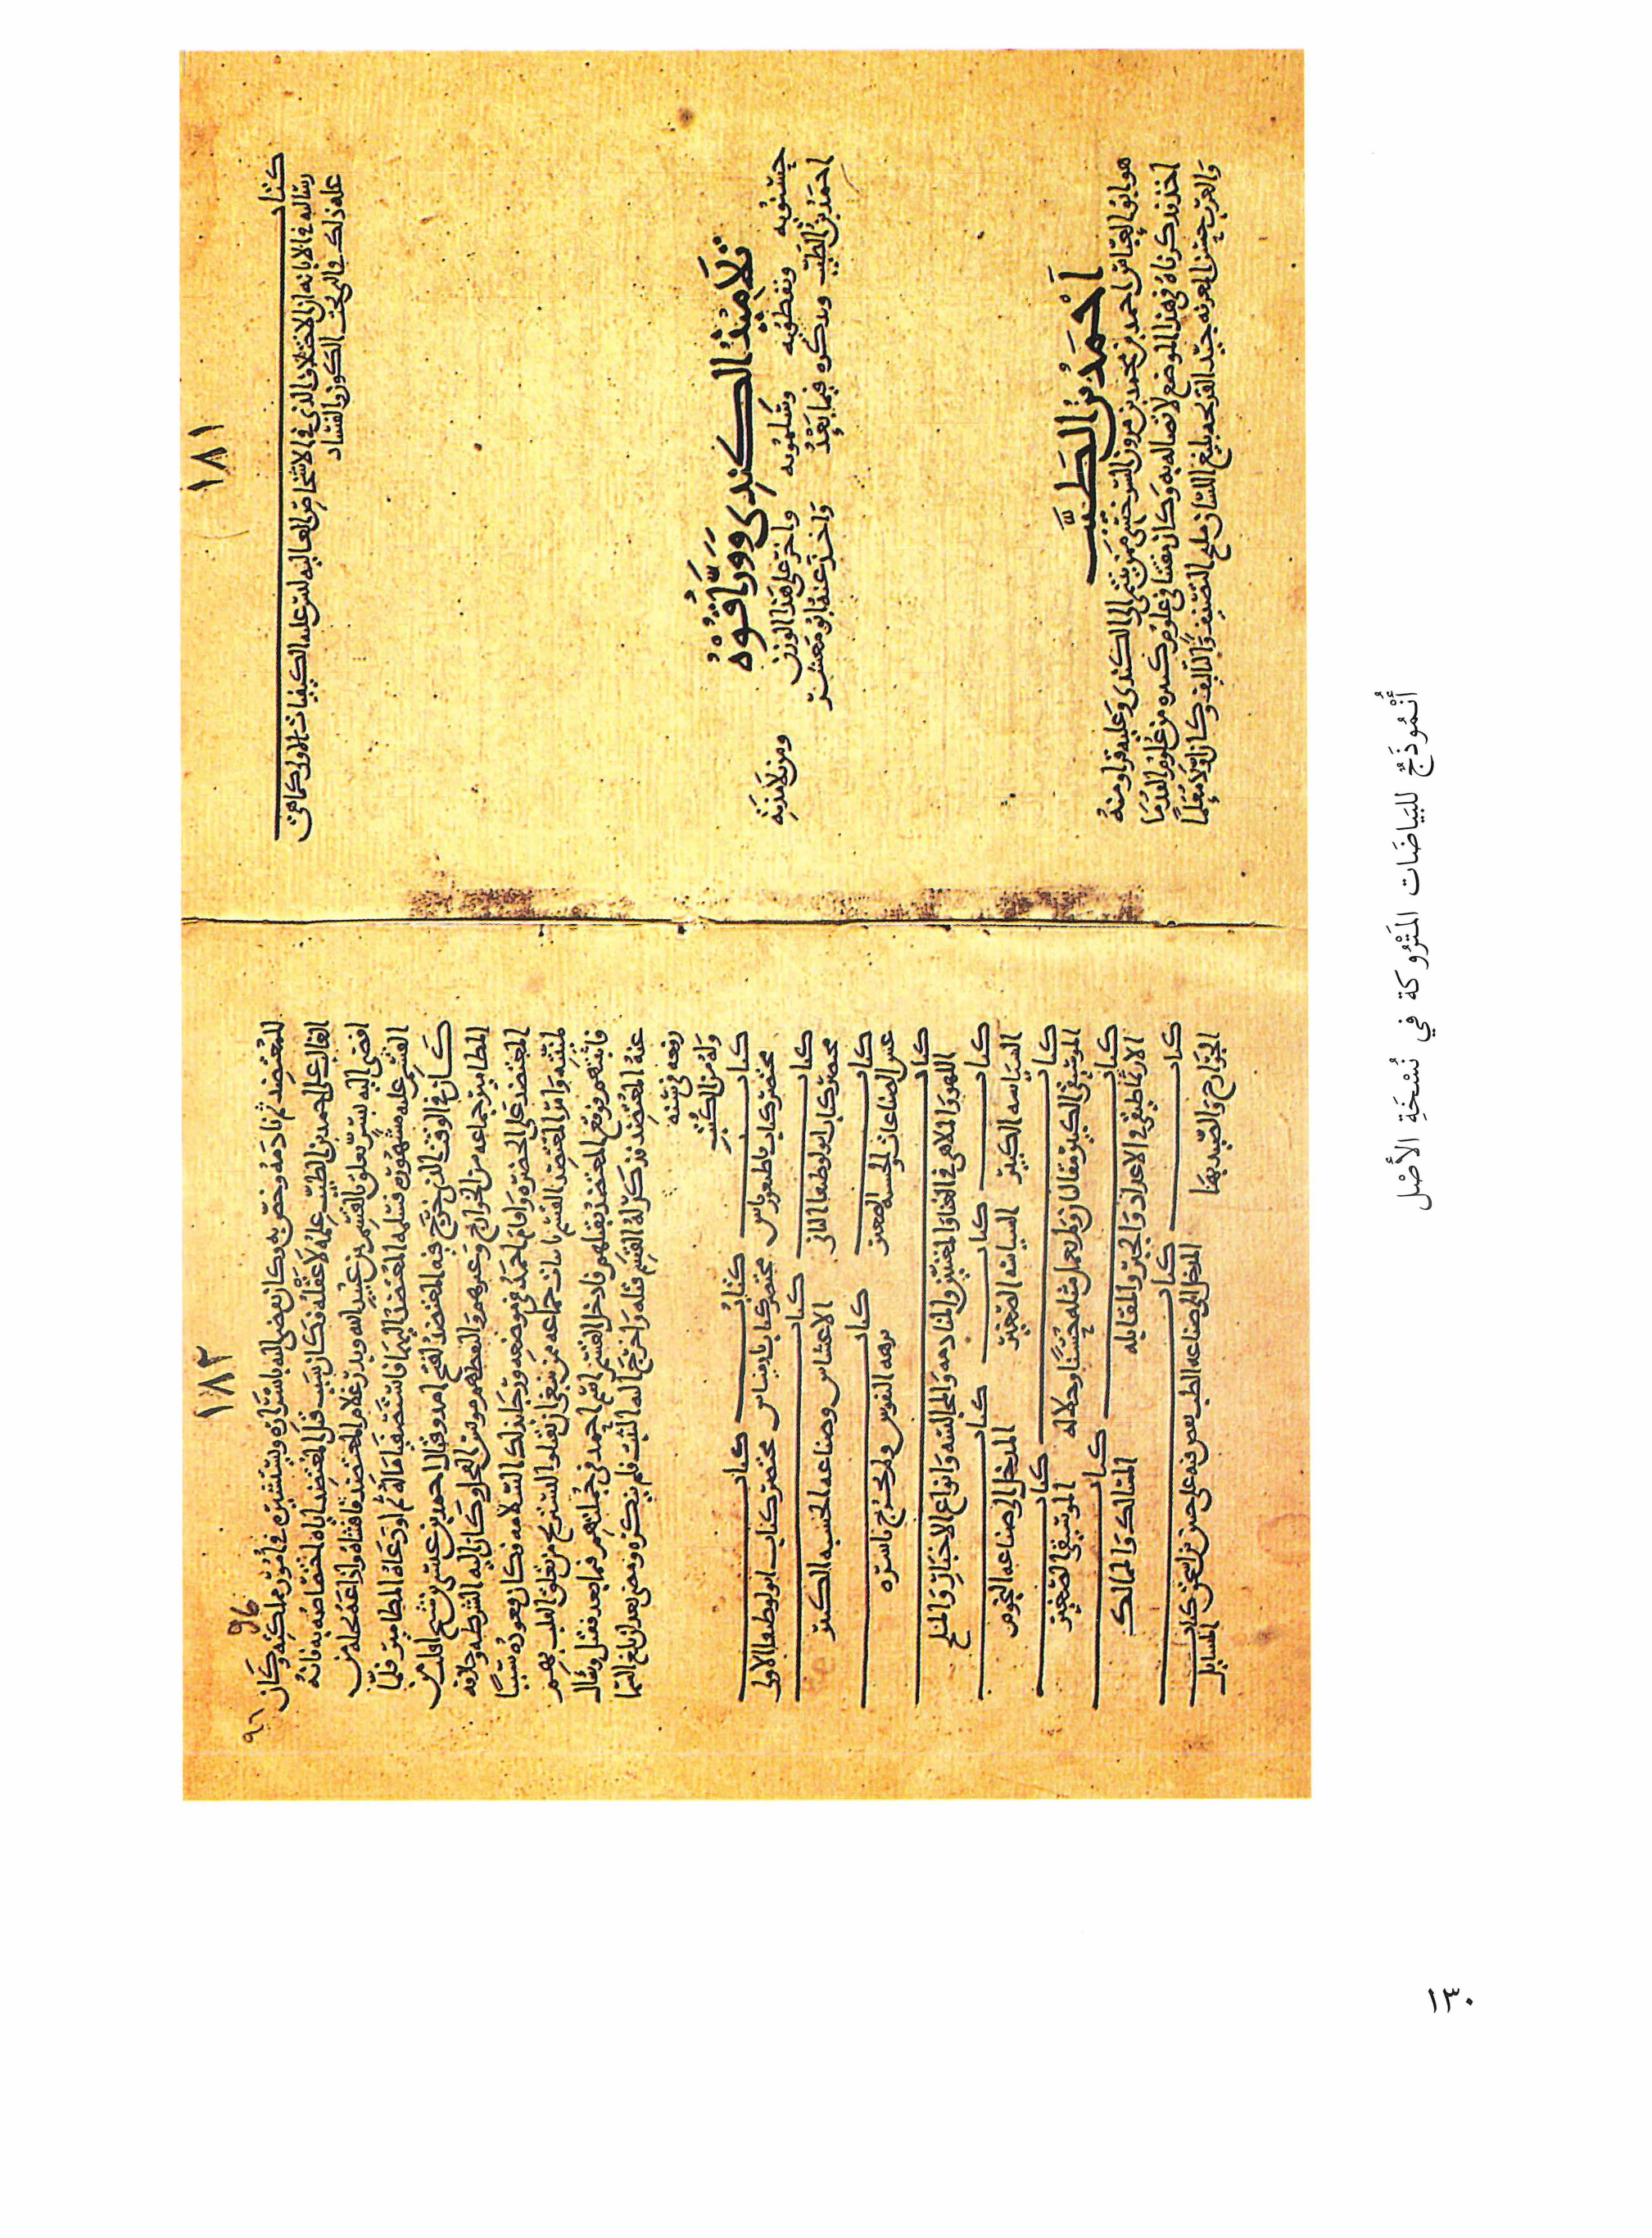 ١٨١
كتاب
رساله في الابانه ان الاختلاف الذي في الاشخاص العاليه ليس عله الكيفيات الاولى كما هي
عله ذلك في التي تحت الكون والفساد
تلاميذ الكندي ووراقوه
حسنويه ونفطويه وسلمويه واخر على هذا الوزن ومن تلامذته
احمد بن الطيب وسنذكره فيما بعد واخذ عنه ابو معشر
احمد بن الطيب
هو ابو العباس احمد بن محمد بن مروان السرخسي ممن ينتمي الى الكندي وعليه قرا ومنه
اخذ ذكرناه في هذا الموضع لاتصاله به وكان مفننا في علوم كثيره من علوم القدما
والعرب حسن المعرفه جيد القريحه بليغ اللسان مليح التصنيف والتاليف وكان اولا معلما
١٨٢
96
٩٦
للمعتضد ثم نادمه وخص به وكان يفضي اليه باسراره ويستشيره في امور مملكته وكان
الغالب على احمد بن الطيب علمه لا عقله وكان سبب قتل المعتضد اياه اختصاصه به فانه
افضى اليه بسر يتعلق بالقسم بن عبيد الله وبدر غلام المعتضد فافشاه واذاعه بحيله من
القسم عليه مشهوره فسلمه المعتضد اليهما فاستصفيا ماله ثم اودعاه المطامير فلما
كان في الوقت الذي خرج فيه المعتضد لفتح امد وقتال احمد بن عيسى بن شيخ افلت من
المطامير جماعه من الخوارج وغيرهم والتقطهم مونس الفحل وكان اليه الشرطه وخلافه
المعتضد على الحضره واقام احمد في موضعه ورجا بذلك السلامه فكان قعوده سببا
لمنيته وامر المعتضد القسم باثبات جماعه ممن ينبغي ان يقتلوا ليستريح من تعلق القلب بهم
فاثبتهم ووقع المعتضد بقتلهم فادخل القسم اسم احمد في جملتهم فيما بعد فقتل وسال
عنه المعتضد فذكر له القسم قتله واخرج اليه الثبت فلم ينكره ومضى بعد ان بلغ السما
رفعه في سنه
وله من الكتب
كتاب مختصر كتاب قاطيغورياس كتاب مختصر كتاب باريمينياس كتاب مختصر كتاب انولوطيقا الاولى
كتاب مختصر كتاب انولوطيقا الثاني كتاب الاعشاش وصناعه الحسبه الكبير
كتاب غش الصناعات والحسبه الصغير كتاب نزهه النفوس ولم يخرج باسره
كتاب اللهو والملاهي في الغنا والمغنيين والمنادمه والمجالسه وانواع الاخبار والملح
كتاب السياسه الكبير كتاب السياسه الصغير كتاب المدخل الى صناعه النجوم
كتاب الموسيقى الكبير مقالتان ولم يعمل مثله حسنا وجلاله كتاب الموسيقى الصغير
كتاب الارثماطيقي في الاعداد والجبر والمقابله كتاب المسالك والممالك
كتاب الجوارح والصيد بها كتاب المدخل الى صناعه الطب نقض فيه على حنين بن اسحق كتاب المسايل
أُنْمُوذَجٌ للبَيَاضَات المَتْرُوكَة في نُسْخَةِ الأصْل
١٣٠